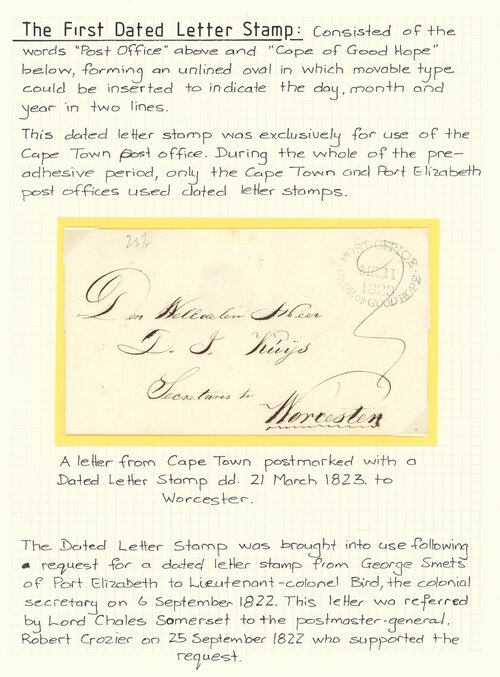 The First Dated Letter Stamp: Consisted of the
words "Post Office" above and "Cape of Good Hope"
below, forming an unlined oval in which movable type
could be inserted to indicate the day, month and
year in two lines.
This dated letter stamp was exclusively for use of the
Cape Town post office. During the whole of the pre-
adhesive period, only the Cape Town and Port Elizabeth
post offices used dated letter stamps.
POST OFFICE
MR 21
1823
CAPE OF GOOD HOPE
Den Welledelen Heer
D. J. Kuijs
Secretaris te
Worcester
A letter from Cape Town postmarked with a
Dated Letter Stamp dd. 21 March 1823. to
Worcester.
The Dated Letter Stamp was brought into use following
a request for a dated letter stamp from George Smets
of Port Elizabeth to Lieutenant-colonel Bird, the colonial
secretary on 6 September 1822. This letter wa referred
by Lord Chales Somerset to the postmaster-general.
Robert Crozier on 25 September 1822 who supported the
request.